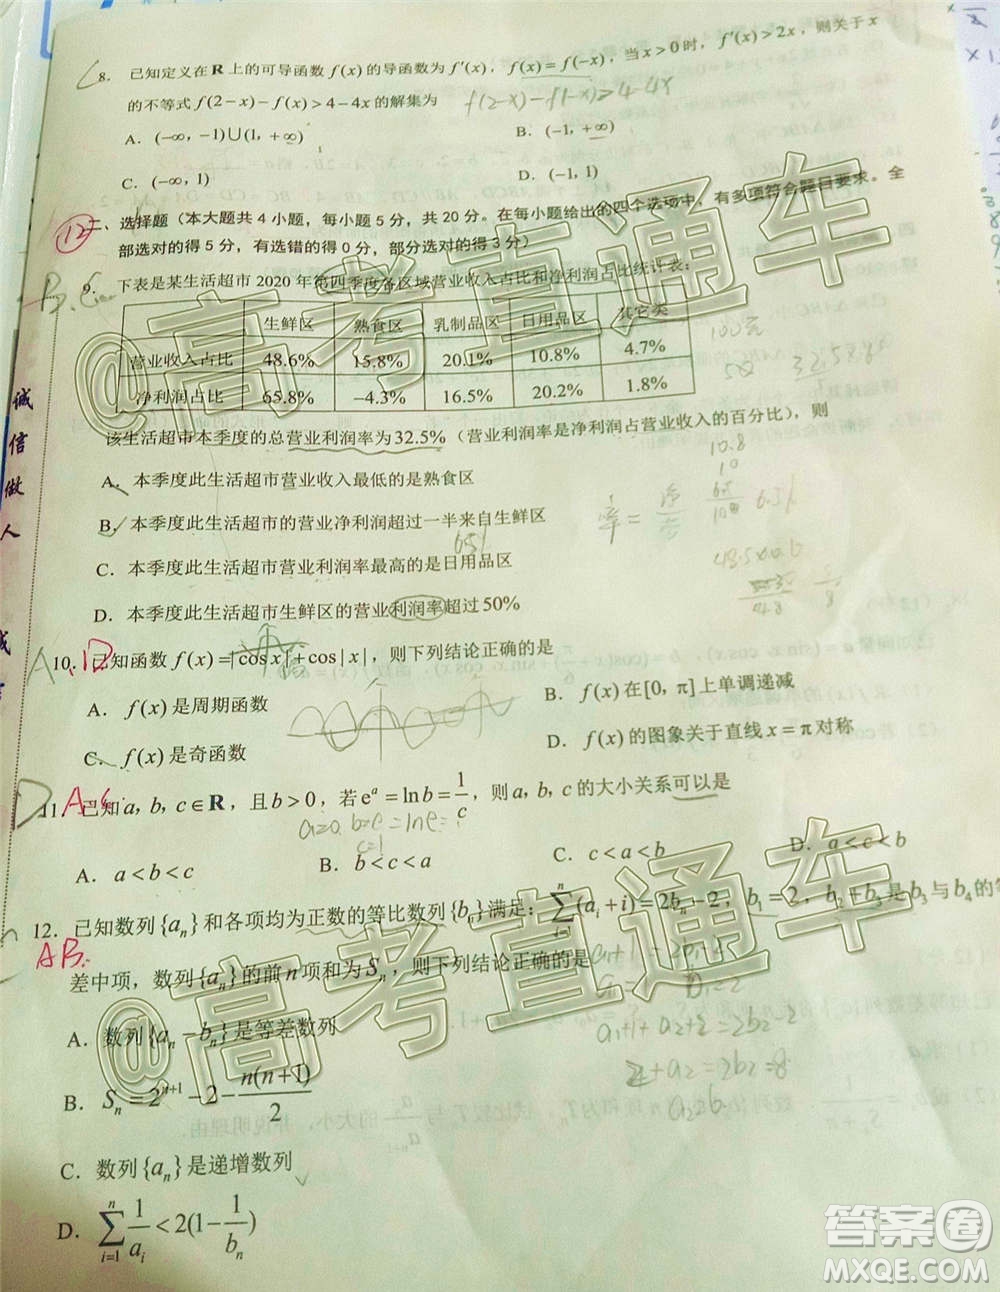 8. 已知定义在 R 上的可导函数 f(x) 的导函数为 f′(x)，f(x)=f(−x)，当 x>0 时，f′(x)>2x，则关于 x
的不等式 f(2−x)−f(x)>4−4x 的解集为
A. (−∞, −1)∪(1, +∞)
B. (−1, +∞)
C. (−∞, 1)
D. (−1, 1)
二、选择题（本大题共 4 小题，每小题 5 分，共 20 分。在每小题给出的四个选项中，有多项符合题目要求。全
部选对的得 5 分，有选错的得 0 分，部分选对的得 3 分）
9. 下表是某生活超市 2020 年第四季度各区域营业收入占比和净利润占比统计表：
生鲜区 熟食区 乳制品区 日用品区 其它类
营业收入占比 48.6% 15.8% 20.1% 10.8% 4.7%
净利润占比 65.8% −4.3% 16.5% 20.2% 1.8%
该生活超市本季度的总营业利润率为32.5%（营业利润率是净利润占营业收入的百分比），则
A. 本季度此生活超市营业收入最低的是熟食区
B. 本季度此生活超市的营业净利润超过一半来自生鲜区
C. 本季度此生活超市营业利润率最高的是日用品区
D. 本季度此生活超市生鲜区的营业利润率超过50%
10. 已知函数 f(x)=|cos x|+cos|x|，则下列结论正确的是
A. f(x) 是周期函数
B. f(x) 在[0, π]上单调递减
C. f(x) 是奇函数
D. f(x) 的图象关于直线 x=π 对称
11. 已知 a, b, c∈R，且 b>0，若 e^a=ln b=1/c，则 a, b, c 的大小关系可以是
A. a<b<c
B. b<c<a
C. c<a<b
D. a<c<b
12. 已知数列{a_n}和各项均为正数的等比数列{b_n}满足：∑_{i=1}^{n}(a_i+i)=2b_n−2，b_1=2，b_2+b_3是b_3与b_4的等
差中项，数列{a_n}的前n项和为S_n，则下列结论正确的是
A. 数列{a_n−b_n}是等差数列
B. S_n=2^{n+1}−2−n(n+1)/2
C. 数列{a_n}是递增数列
D. ∑_{i=1}^{n} 1/a_i<2(1−1/b_n)
诚信做人
@高考直通车
@高考直通车
答案圈
MXQE.COM